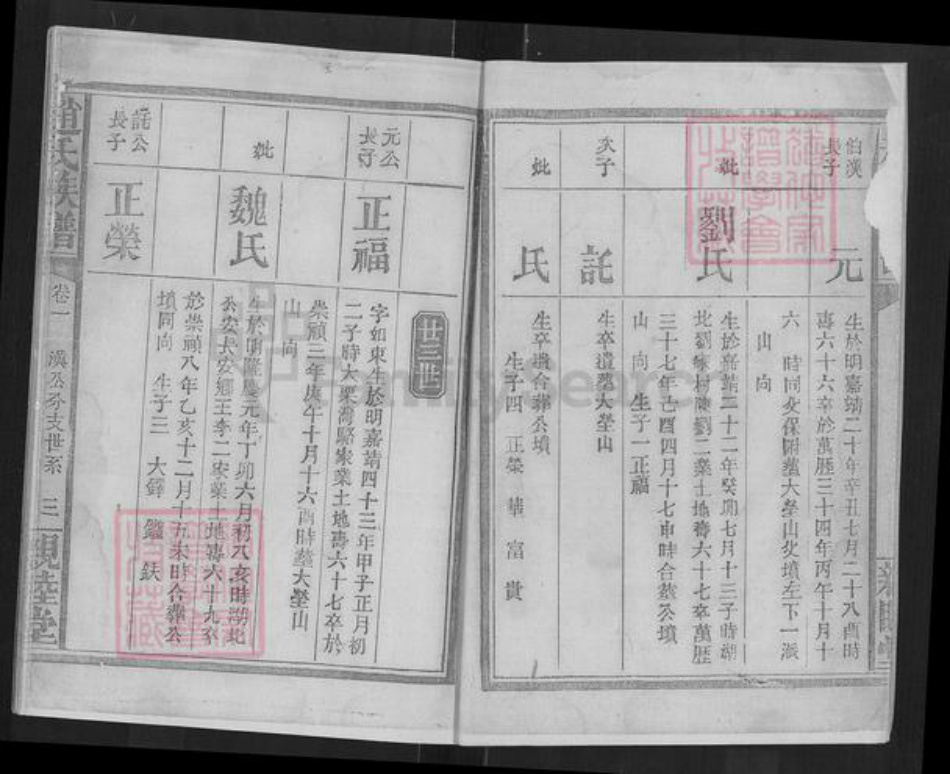 伯漢長子
元
生於明嘉靖二十年辛丑七月二十八酉時
壽六十六卒於萬歷三十四年丙午十月十
六 時同父保附塟大塋山父墳左下一派
山 向
妣
劉氏
生於嘉靖二十二年癸卯七月十三子時湖
北劉家楊陳劉二業土地壽六十七卒萬歷
三十七年己酉四月十七申時合塟公墳
山 向 生子一正福
次子
託
生卒遺塟大塋山
妣
氏
生卒遺合葬公墳
生子四 正榮 華 富 貴
廿三世
元公長子
正福
字如東生於明嘉靖四十三年甲子正月初
二子時大栗灣駱家業土地壽六十七卒於
崇禎三年庚午十月十六酉時塟大塋山
山 向
妣
魏氏
生於明隆慶元年丁卯六月初八亥時湖北
公安長安鄉王李二家業土地壽六十九卒
於崇禎八年乙亥十二月十五未時合葬公
墳同向 生子三 大鐸 鑑 鈇
託公長子
正榮
趙氏族譜
卷一
漢公分支世系
三
親睦堂